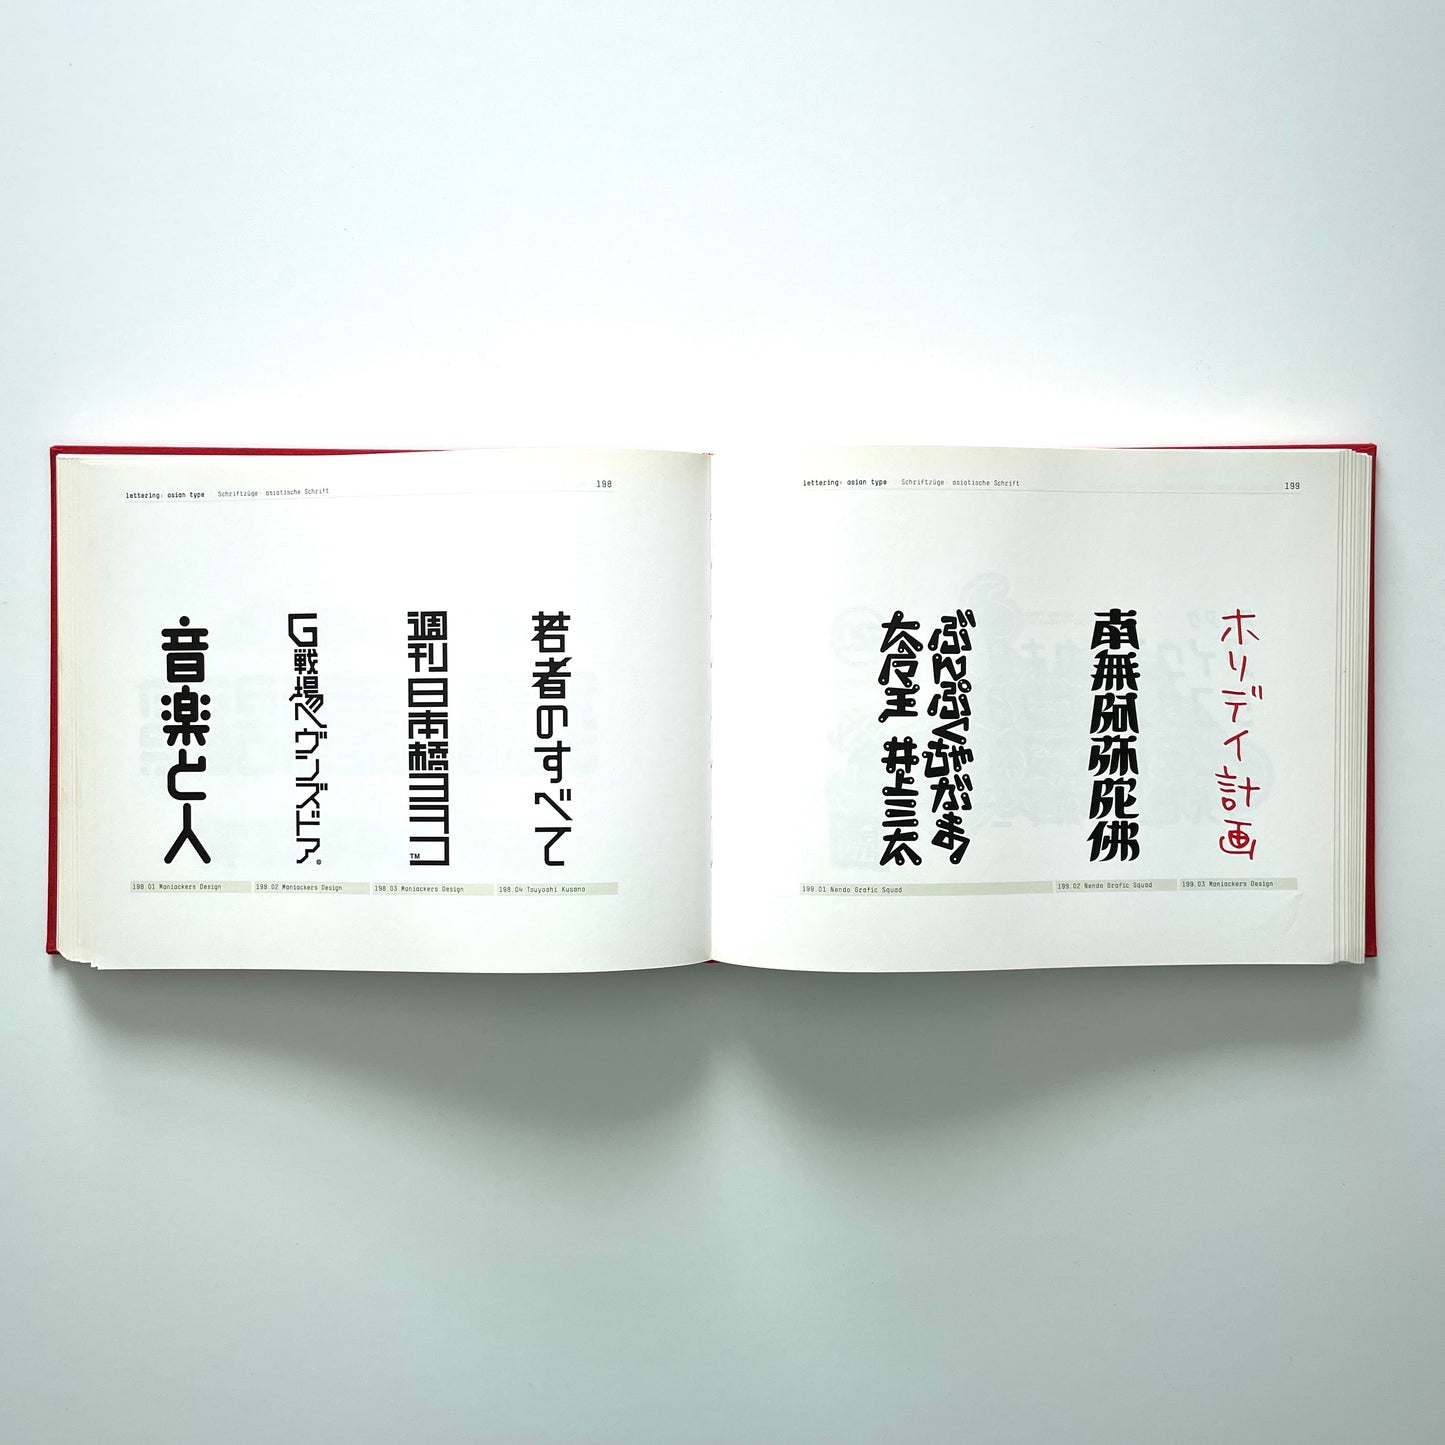 lettering: asian type
Schriftzüge: asiatische Schrift
198
音楽と人
G戦場ヘヴンズドア®
週刊日本橋ヨヲコ™
若者のすべて
198.01 Maniackers Design
198.02 Maniackers Design
198.03 Maniackers Design
198.04 Tsuyoshi Kusano
lettering: asian type
Schriftzüge: asiatische Schrift
199
ぶんぷくちゃがま
大魔王 井上三太
南無阿弥陀佛
ホリデイ計画
199.01 Nendo Grafic Squad
199.02 Nendo Grafic Squad
199.03 Maniackers Design